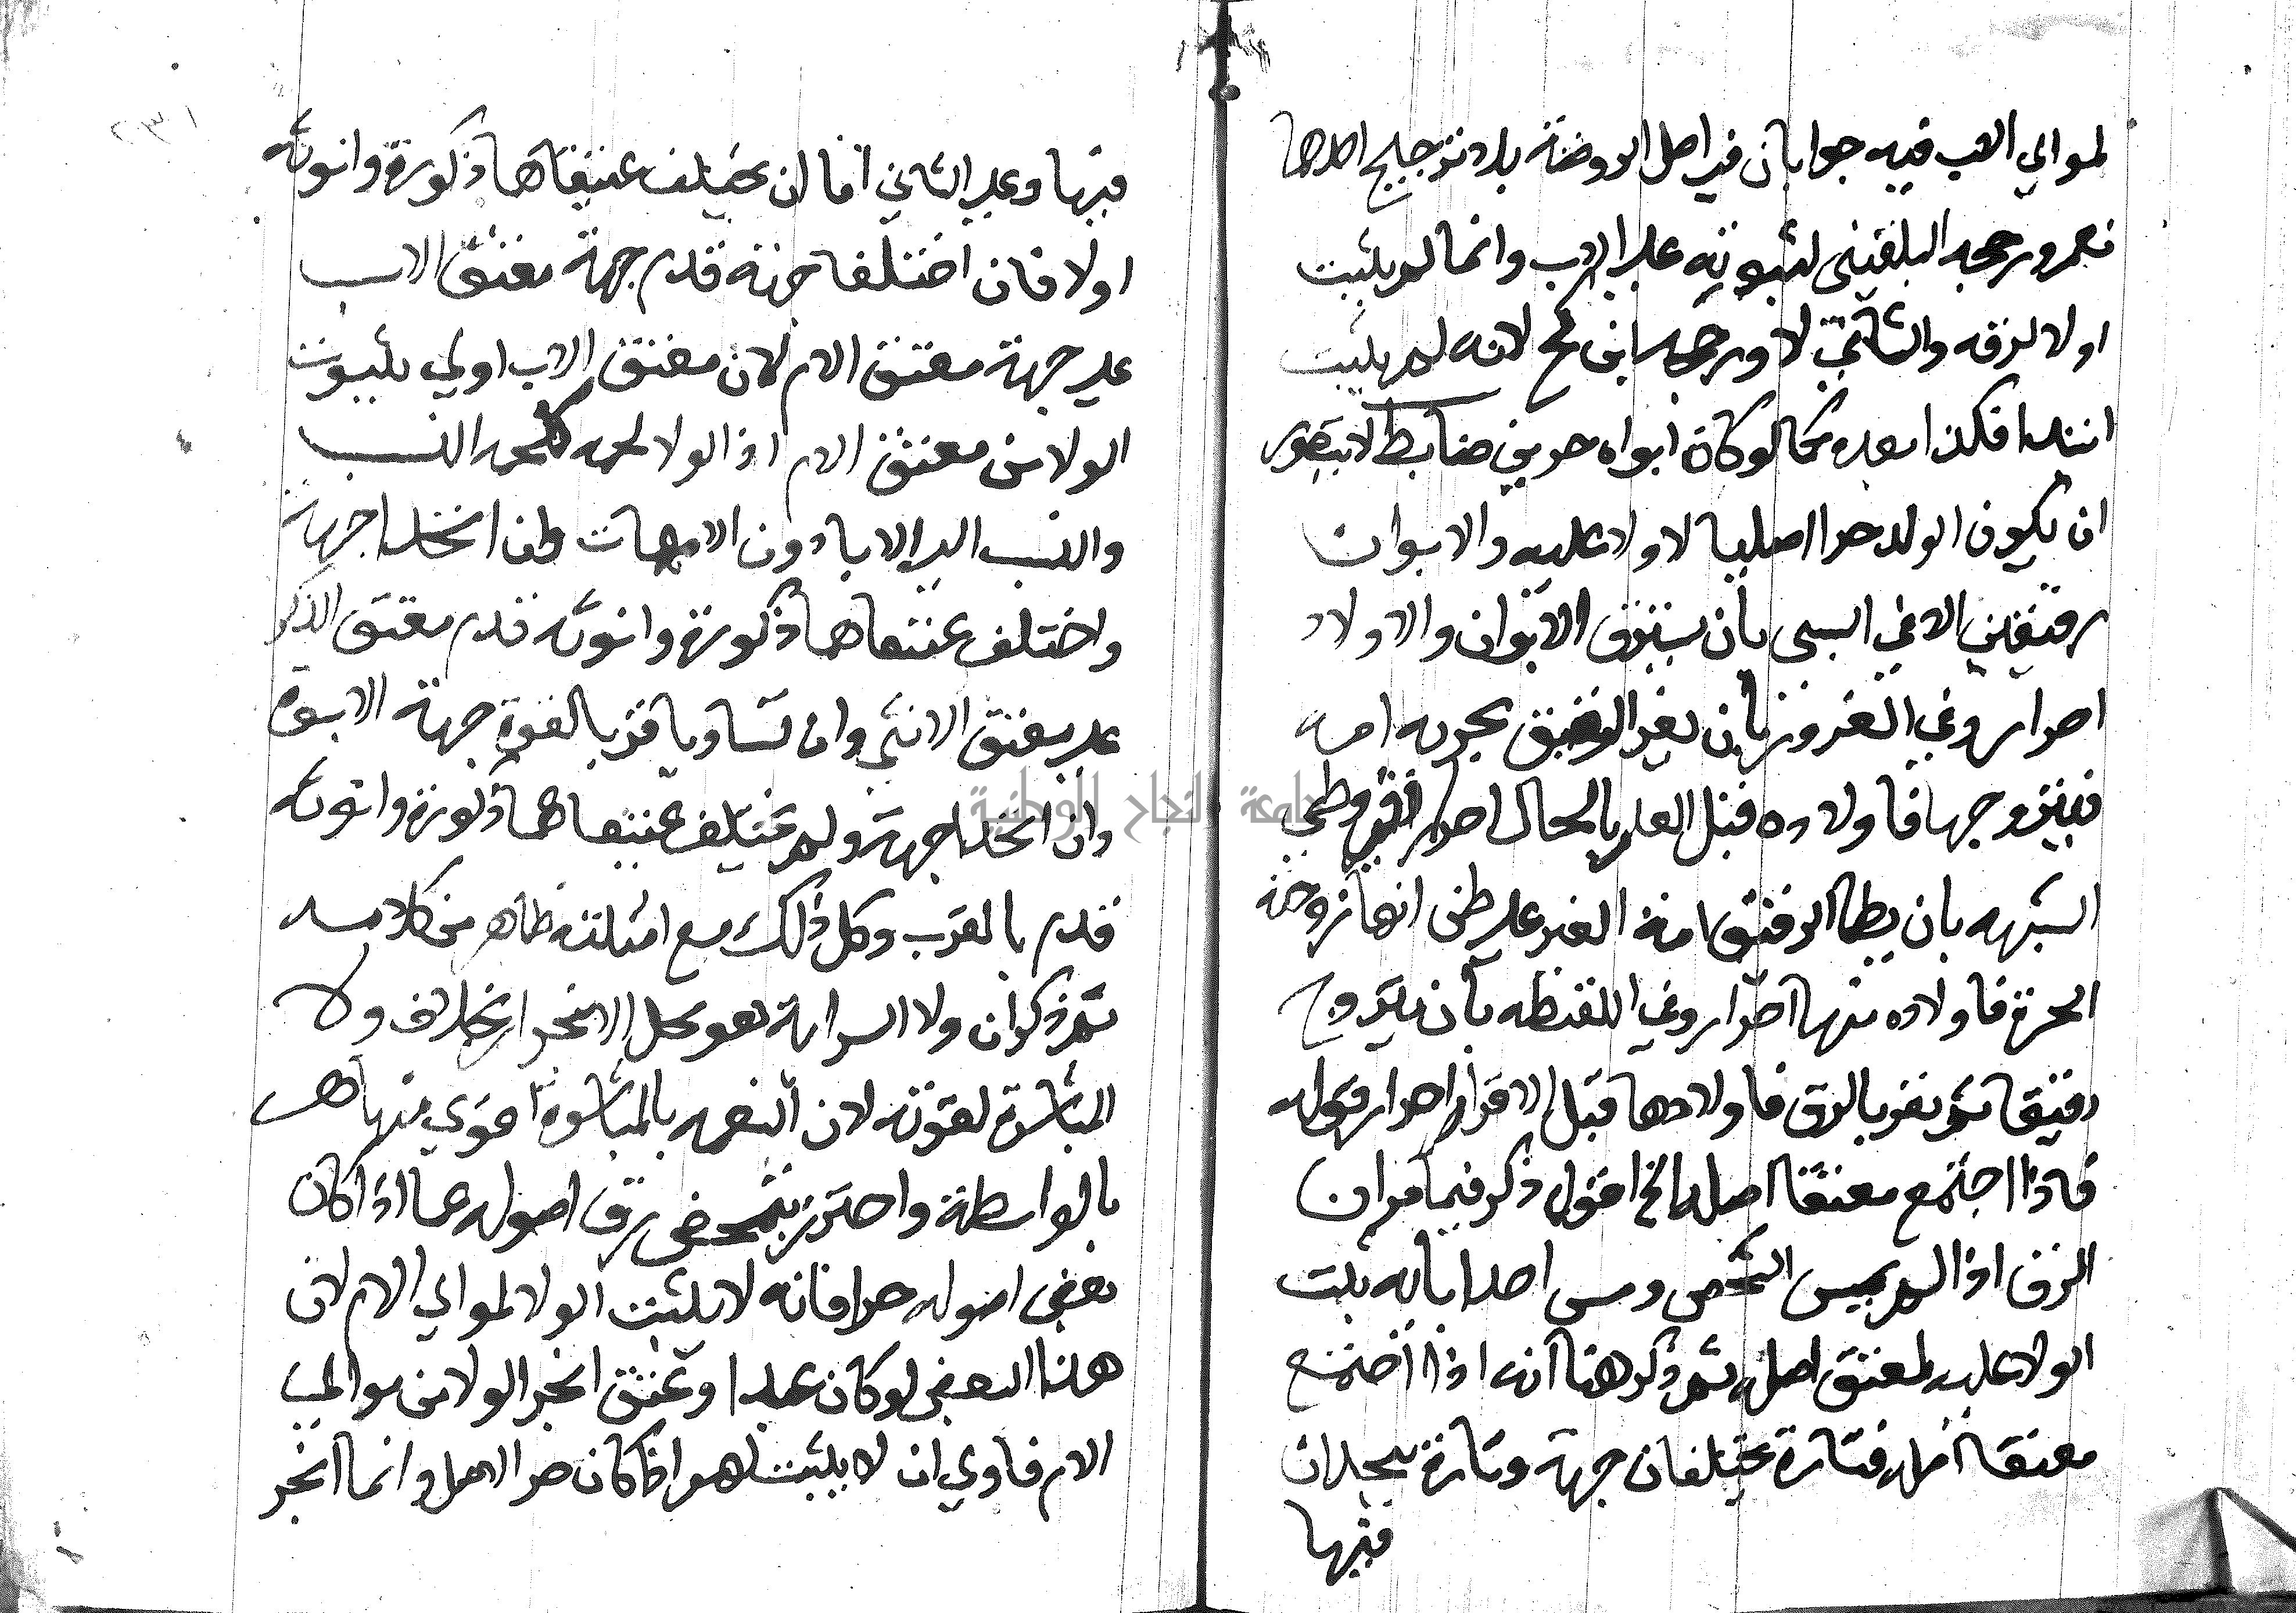 لموالي الاب فيه جوابان في اصل الروضة بلا ترجيح احدهما
نعم ورجحه البلقيني لثبوته على الاب وانما لم يثبت
اولا لرقه والثاني لا ورجحه ابن كج لانه لم يثبت
ابتداء فكذا بعده كما لو كان ابواه حرين ضابط لا يتصور
ان يكون الولد حرا اصليا لا ولاء عليه والابوان
رقيقين الا في السبي بان يسترق الابوان والاولاد
احرار وفي الغرور بان يغر الرقيق بحرية امه
فيتزوجها فاولاده قبل العلم بالحال احرار وفي وطئ
الشبهه بان يطا الرقيق امة الغير على ظن انها زوجته
الحرة فاولاده منها احرار وفي اللقيطه بان يتزوج
رقيقا ثم تقر بالرق فاولادها قبل الاقرار احرار قوله
فاذا اجتمع معتقا اصله الخ اقول ذكر فيما مر ان
الرق اذا لم يمس الشخص ومس احد ابايه يثبت
الولا عليه لمعتق اصله ثم ذكر هنا انه اذا اجتمع
معتقا اصله فتارة يختلفان جهة وتارة يتحدان
فيها
١٣٢
فيها وعلى الثاني اما ان يختلف عتيقاهما ذكورة وانوثة
اولا فان اختلفا جهة قدم جهة معتق الاب
على جهة معتق الام لان معتق الاب اولي بثبوت
الولا من معتق الام اذ الولا لحمه كلحمه النسب
والنسب الى الابا دون الامهات وان اتحدا جهة
واختلف عتيقاهما ذكورة وانوثة قدم معتق الذكر
على معتق الانثى وان تساويا قربا لقوة جهة الابوة
وان اتحدا جهة ولم يختلف عتيقاهما ذكورة وانوثة
قدم بالقرب وكل ذلك مع امثلته ظاهر من كلامه
ثم ذكر ان ولا السراية هو محل الانجرار بخلاف ولا
المباشرة لقوته لان النعمه بالمباشرة اقوي منها
بالواسطة واحترز بتمحض رق اصوله عما اذا كان
بعض اصوله حرا فانه لا يثبت الولا لموالي الام لان
هذا البعض لو كان عبدا وعتق انجر الولا من موالي
الام فاولي ان لا يثبت لهم اذا كان حر الاصل وانما انجر